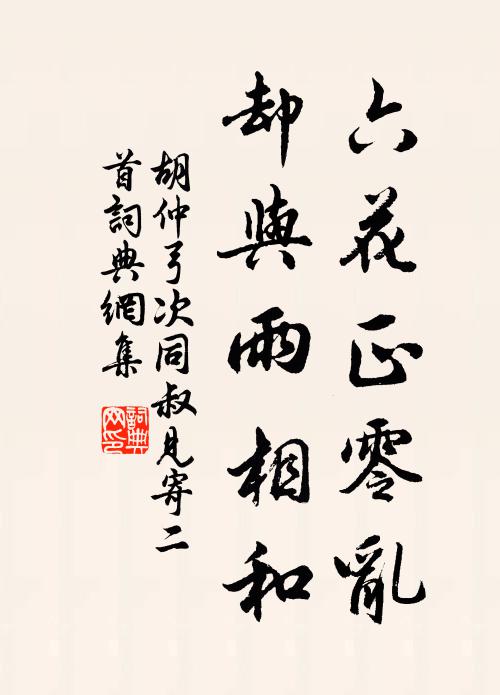 六花正零亂
却與雨相和
胡仲弓次同叔見寄二
首詞典網集
詞典
网印